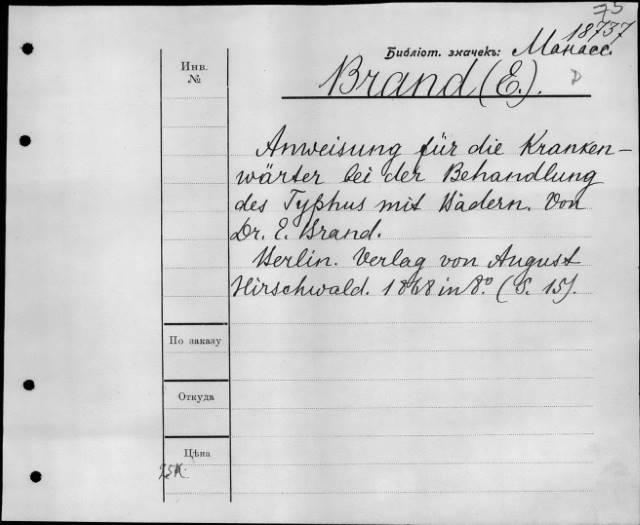 75
18737
Библіот. значекъ: Манасс.
Инв.
№
Brand (E.).
D
Anweisung für die Kranken-
wärter bei der Behandlung
des Typhus mit Bädern. Von
Dr. E. Brand.
Berlin. Verlag von August
Hirschwald. 1868 in 8.° (S. 15).
По заказу
Откуда
Цѣна